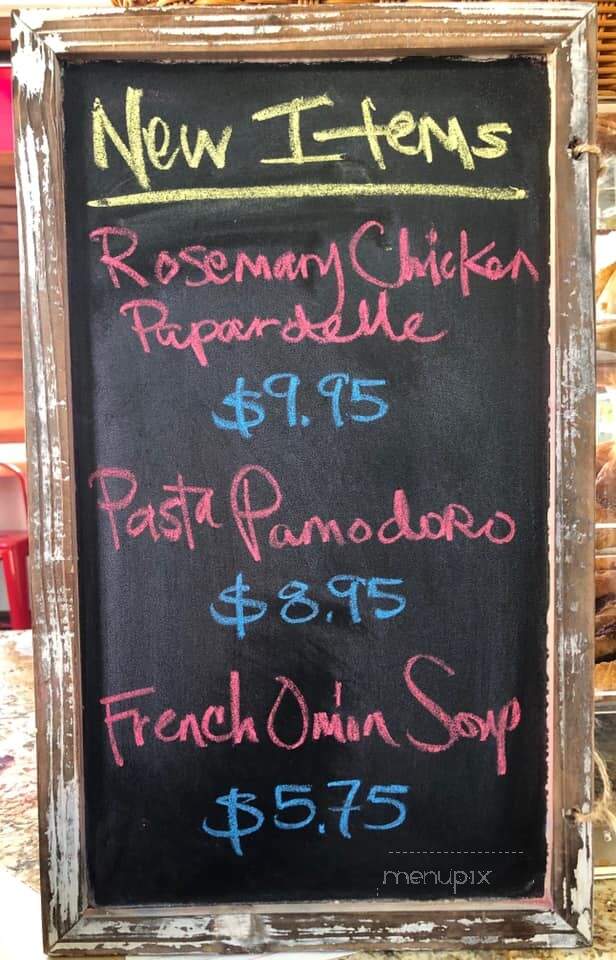 New Items
Rosemary Chicken
Papardelle
$9.95
Pasta Pamodoro
$8.95
French Onion Soup
$5.75
menupix